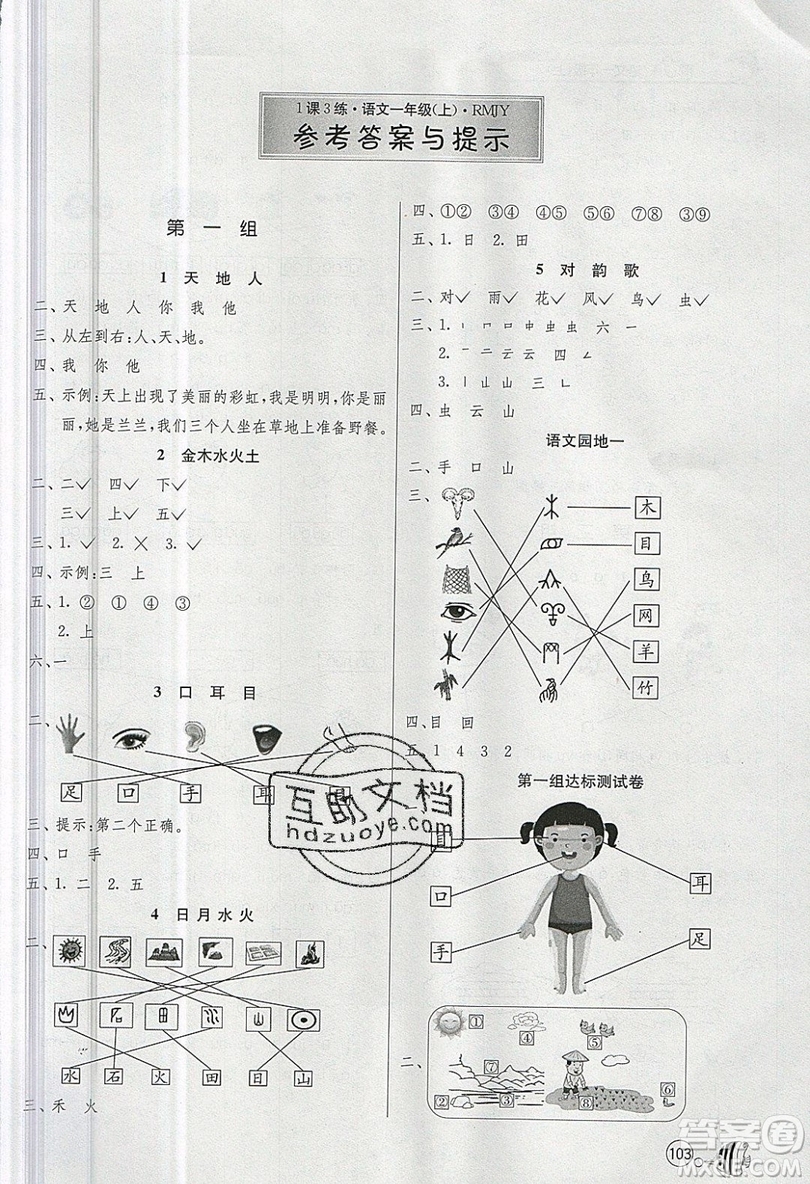 1课3练·语文一年级(上)·RMJY
参考答案与提示
第一组
1 天地人
二、天 地 人 你 我 他
三、从左到右:人、天、地。
四、我 你 他
五、示例:天上出现了美丽的彩虹,我是明明,你是丽
丽,她是兰兰,我们三个人坐在草地上准备野餐。
2 金木水火土
二、二✓ 四✓ 下✓
三✓ 上✓ 五✓
三、1.✓ 2.✕ 3.✓
四、示例:三 上
五、1.② ① ④ ③
2.上
六、一
3 口耳目
二、
足 口 手 耳 目
三、提示:第二个正确。
四、口 手
五、1.二 2.五
4 日月水火
二、
水 石 火 田 日 山
三、禾 火
四、①② ③④ ①⑤ ⑥④ ⑦⑧ ③⑨
五、1.日 2.田
5 对韵歌
二、对✓ 雨✓ 花✓ 风✓ 鸟✓ 虫✓
三、1.丨 𠃍 口 中 虫 虫 六 一
2.二 云 云 四 一
3.丨 山 山 三
四、虫 云 山
语文园地一
二、手 口 山
三、
木
目
鸟
网
羊
竹
四、目 回
五、1 4 3 2
第一组达标测试卷
一、
目
口
手
耳
足
二、
① ④ ⑤ ⑦ ② ③ ⑧ ⑥
103
互助文档
hdzuoye.com
答案圈
MXQE.COM